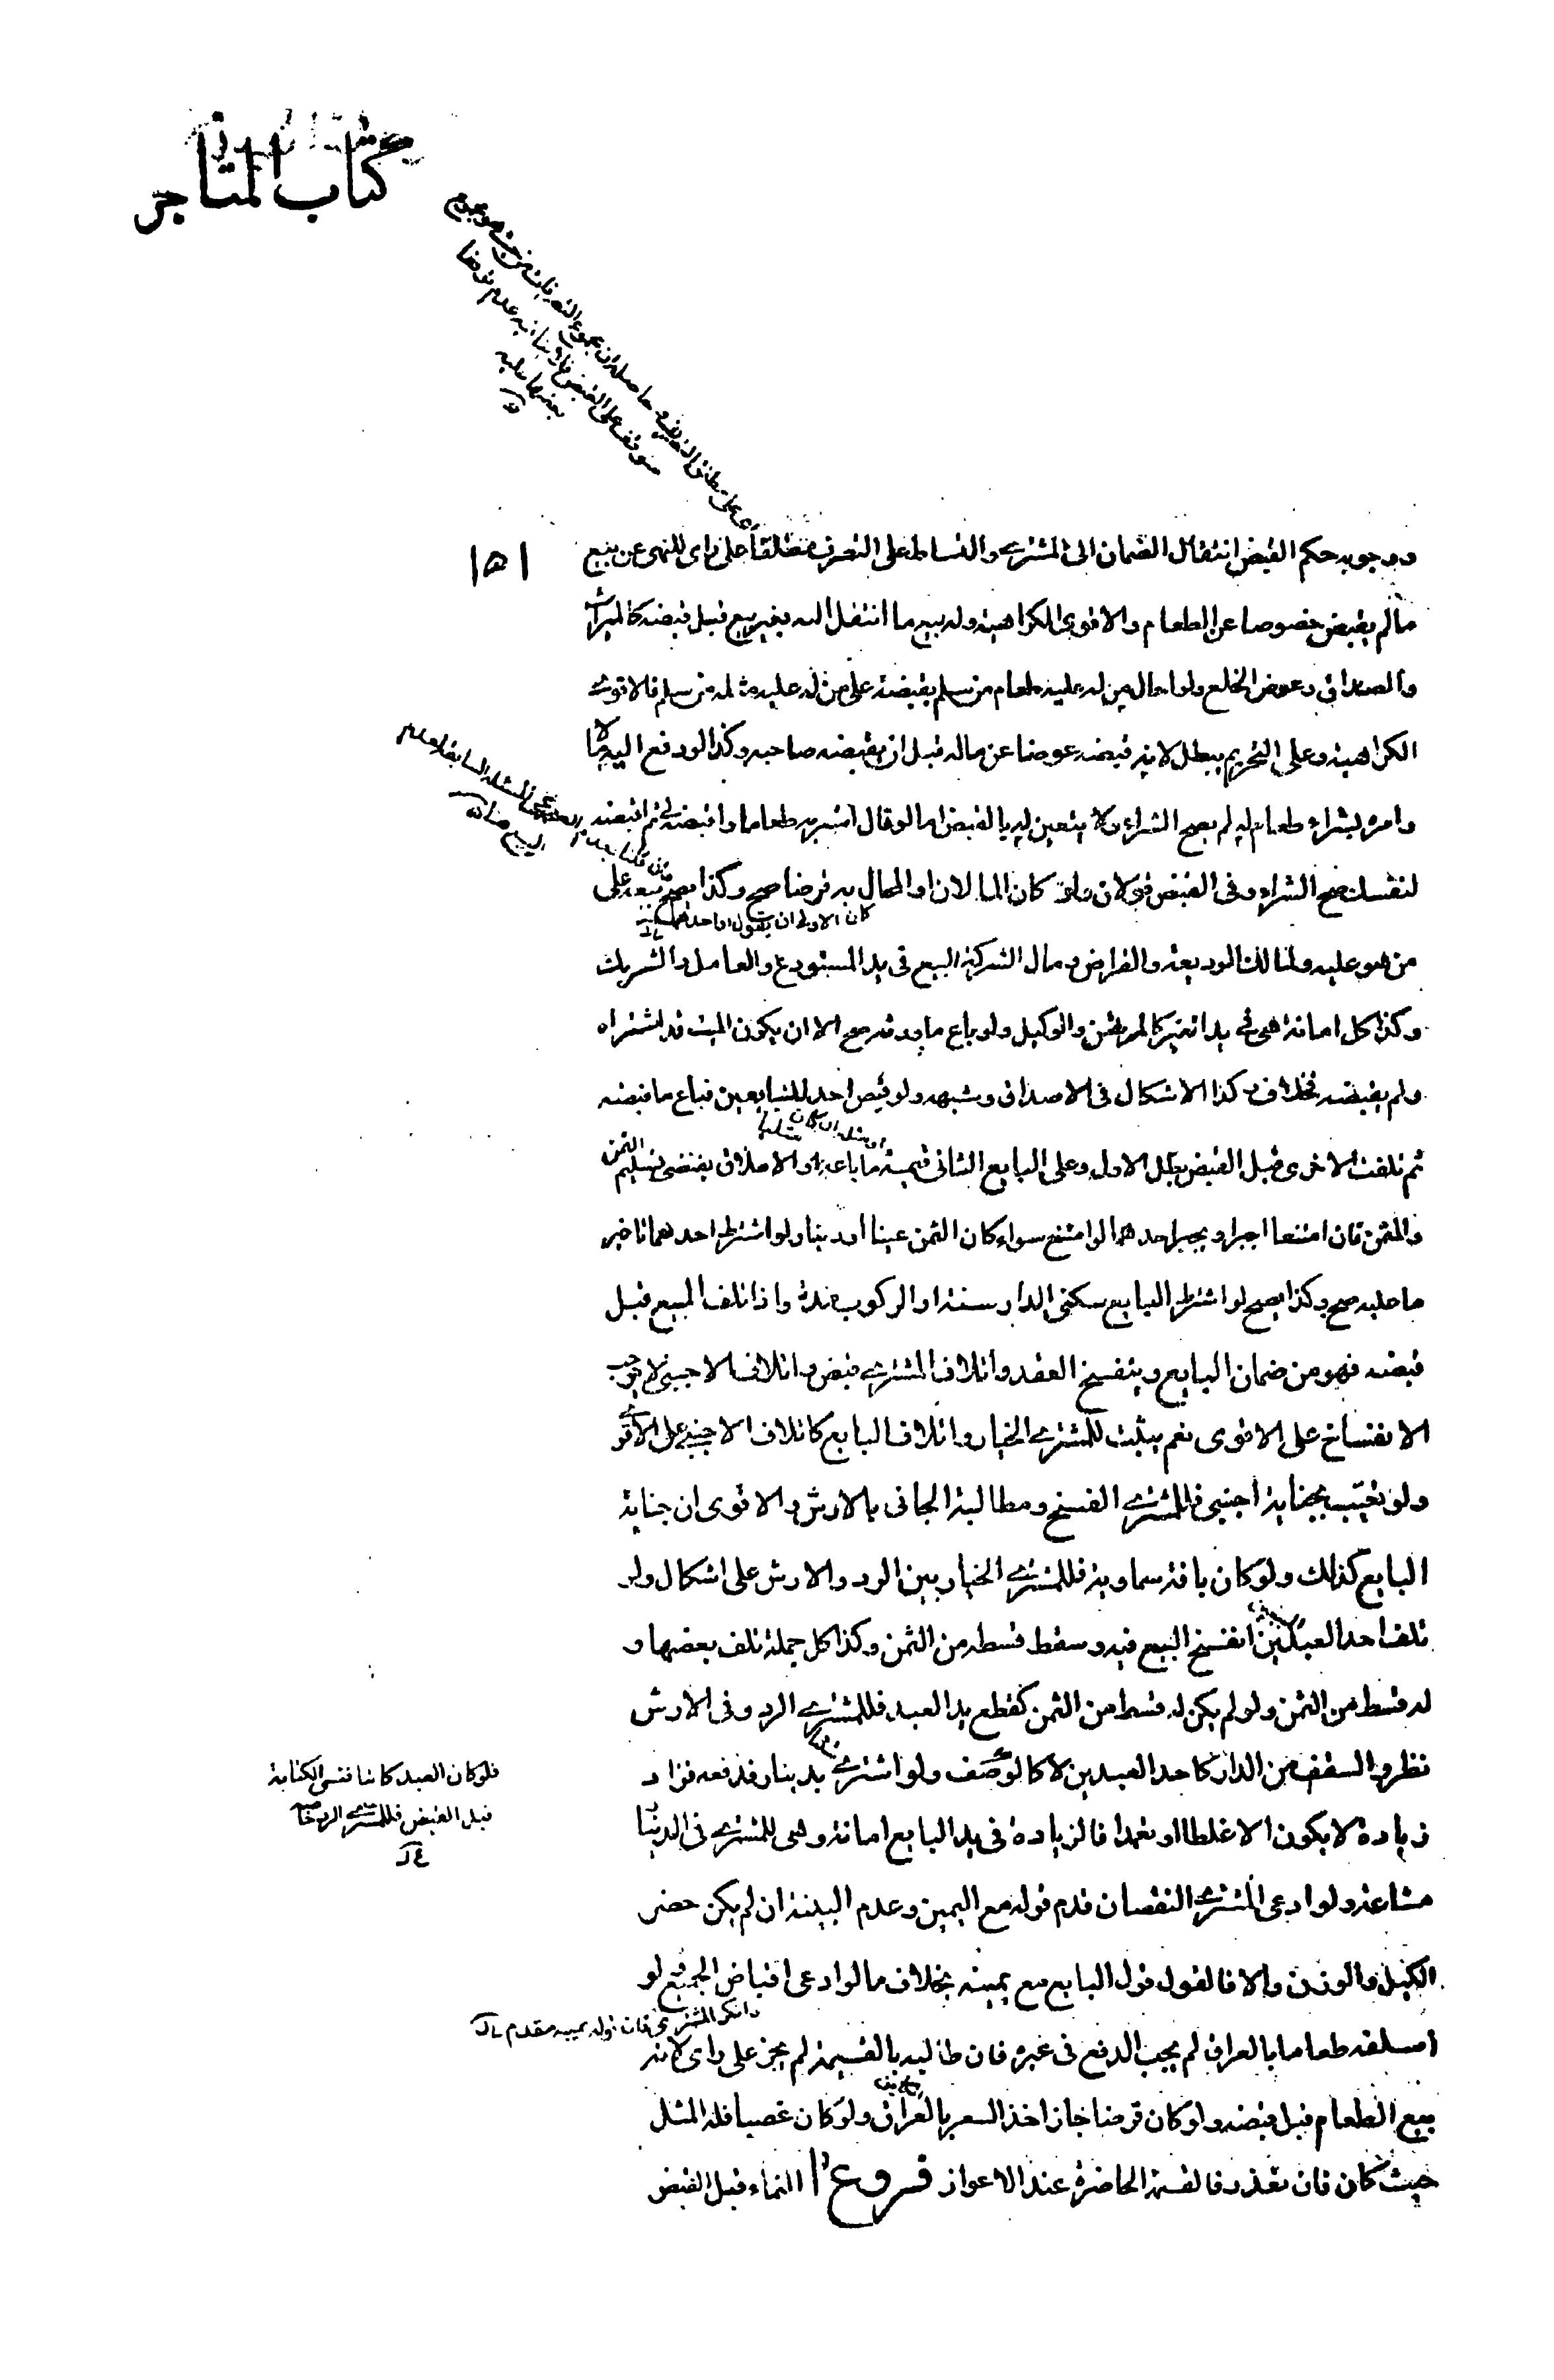 كتاب المتاجر
١٥١
ووجوبه حكم القبض انتقال الضمان الى المشتري والتسلط على التصرف مطلقا على راى للنهى عن بيع
مالم يقبض خصوصا عن الطعام والاقوى الكراهية وله بيع ما انتقل اليه بغير بيع قبل قبضه كالميراث
والصداق وعوض الخلع ولو احال من له عليه طعام من سلم بقبضه على من له عليه مثله من سلم فالاقوى
الكراهية وعلى التحريم يبطل لانه قبضه عوضا عن ماله قبل ان يقبضه صاحبه وكذا لو دفع اليه مالا
وامره بشراء طعام له لم يصح الشراء ولا يتعين له بالقبض اما لو قال اشتر به طعاما واقبضه لى ثم اقبضه
فان قلنا بعدم
المسئلة السابقة
لنفسك صح الشراء وفى القبض قولان ولو كان المالان او المحال به قرضا صح وكذا يصح بيعه على
كان الاولى ان يقول او احدهما
من هو عليه ولمالك الوديعة والقراض ومال الشركة البيع فى يد المستودع والعامل والشريك
وكذا كل امانة هى فى يد الغير كالمرتهن والوكيل ولو باع ما ورثه صح الا ان يكون الميت قد اشتراه
ولم يقبضه فخلاف وكذا الاشكال فى الاصداق وشبهه ولو قبض احد المتبايعين فباع ما قبضه
او مثله ان كان مثليا
ثم تلفت الاخرى قبل القبض بطل الاول وعلى البايع الثانى قيمة ما باعه والاطلاق يقتضى تسليم الثمن
والمثمن فان امتنعا اجبرا ويجبر احدهما لو امتنع سواء كان الثمن عينا او دينا ولو اشترط احدهما تاخير
ما عليه صح وكذا يصح لو اشترط البايع سكنى الدار سنة او الركوب مدة واذا تلف المبيع قبل
قبضه فهو من ضمان البايع وينفسخ العقد واتلاف المشتري قبض واتلاف الاجنبى لا يوجب
الانفساخ على الاقوى نعم يثبت للمشتري الخيار واتلاف البايع كاتلاف الاجنبى على الاقوى
ولو تعيب بجناية اجنبى فللمشتري الفسخ ومطالبة الجانى بالارش والاقوى ان جناية
البايع كذلك ولو كان بافة سماوية فللمشتري الخيار بين الرد والارش على اشكال ولو
تلف احد العبدين انفسخ البيع فيه وسقط قسطه من الثمن وكذا كل جملة تلف بعضها و
له قسط من الثمن ولو لم يكن له قسط من الثمن كقطع يد العبد فللمشتري الرد وفى الارش
نظر والسقف من الدار كاحد العبدين لا كالوصف ولو اشترى بدينار فدفعه فزاد
فلو كان العبد كاتبا فنسى الكتابة
قبل القبض فللمشتري الرد خاصة
زيادة لا يكون الا غلطا او تعمدا فالزيادة فى يد البايع امانة وهى للمشتري فى الدينار
مشاعة ولو ادعى المشتري النقصان قدم قوله مع اليمين وعدم البينة ان لم يكن حضر
الكيل والوزن والا فالقول قول البايع مع يمينه بخلاف ما لو ادعى اقباض الجميع لو
وانكر المشترى فان قوله بيمينه مقدم
اسلفه طعاما بالعراق لم يجب الدفع فى غيره فان طالبه بالقيمة لم يجز على راى لانه
بيع الطعام قبل قبضه ولو كان قرضا جاز اخذ السعر بالعراق ولو كان غصبا فله المثل
حيث كان فان تعذر فالقيمة الحاضرة عند الاعواز فروع ا النماء قبل القبض